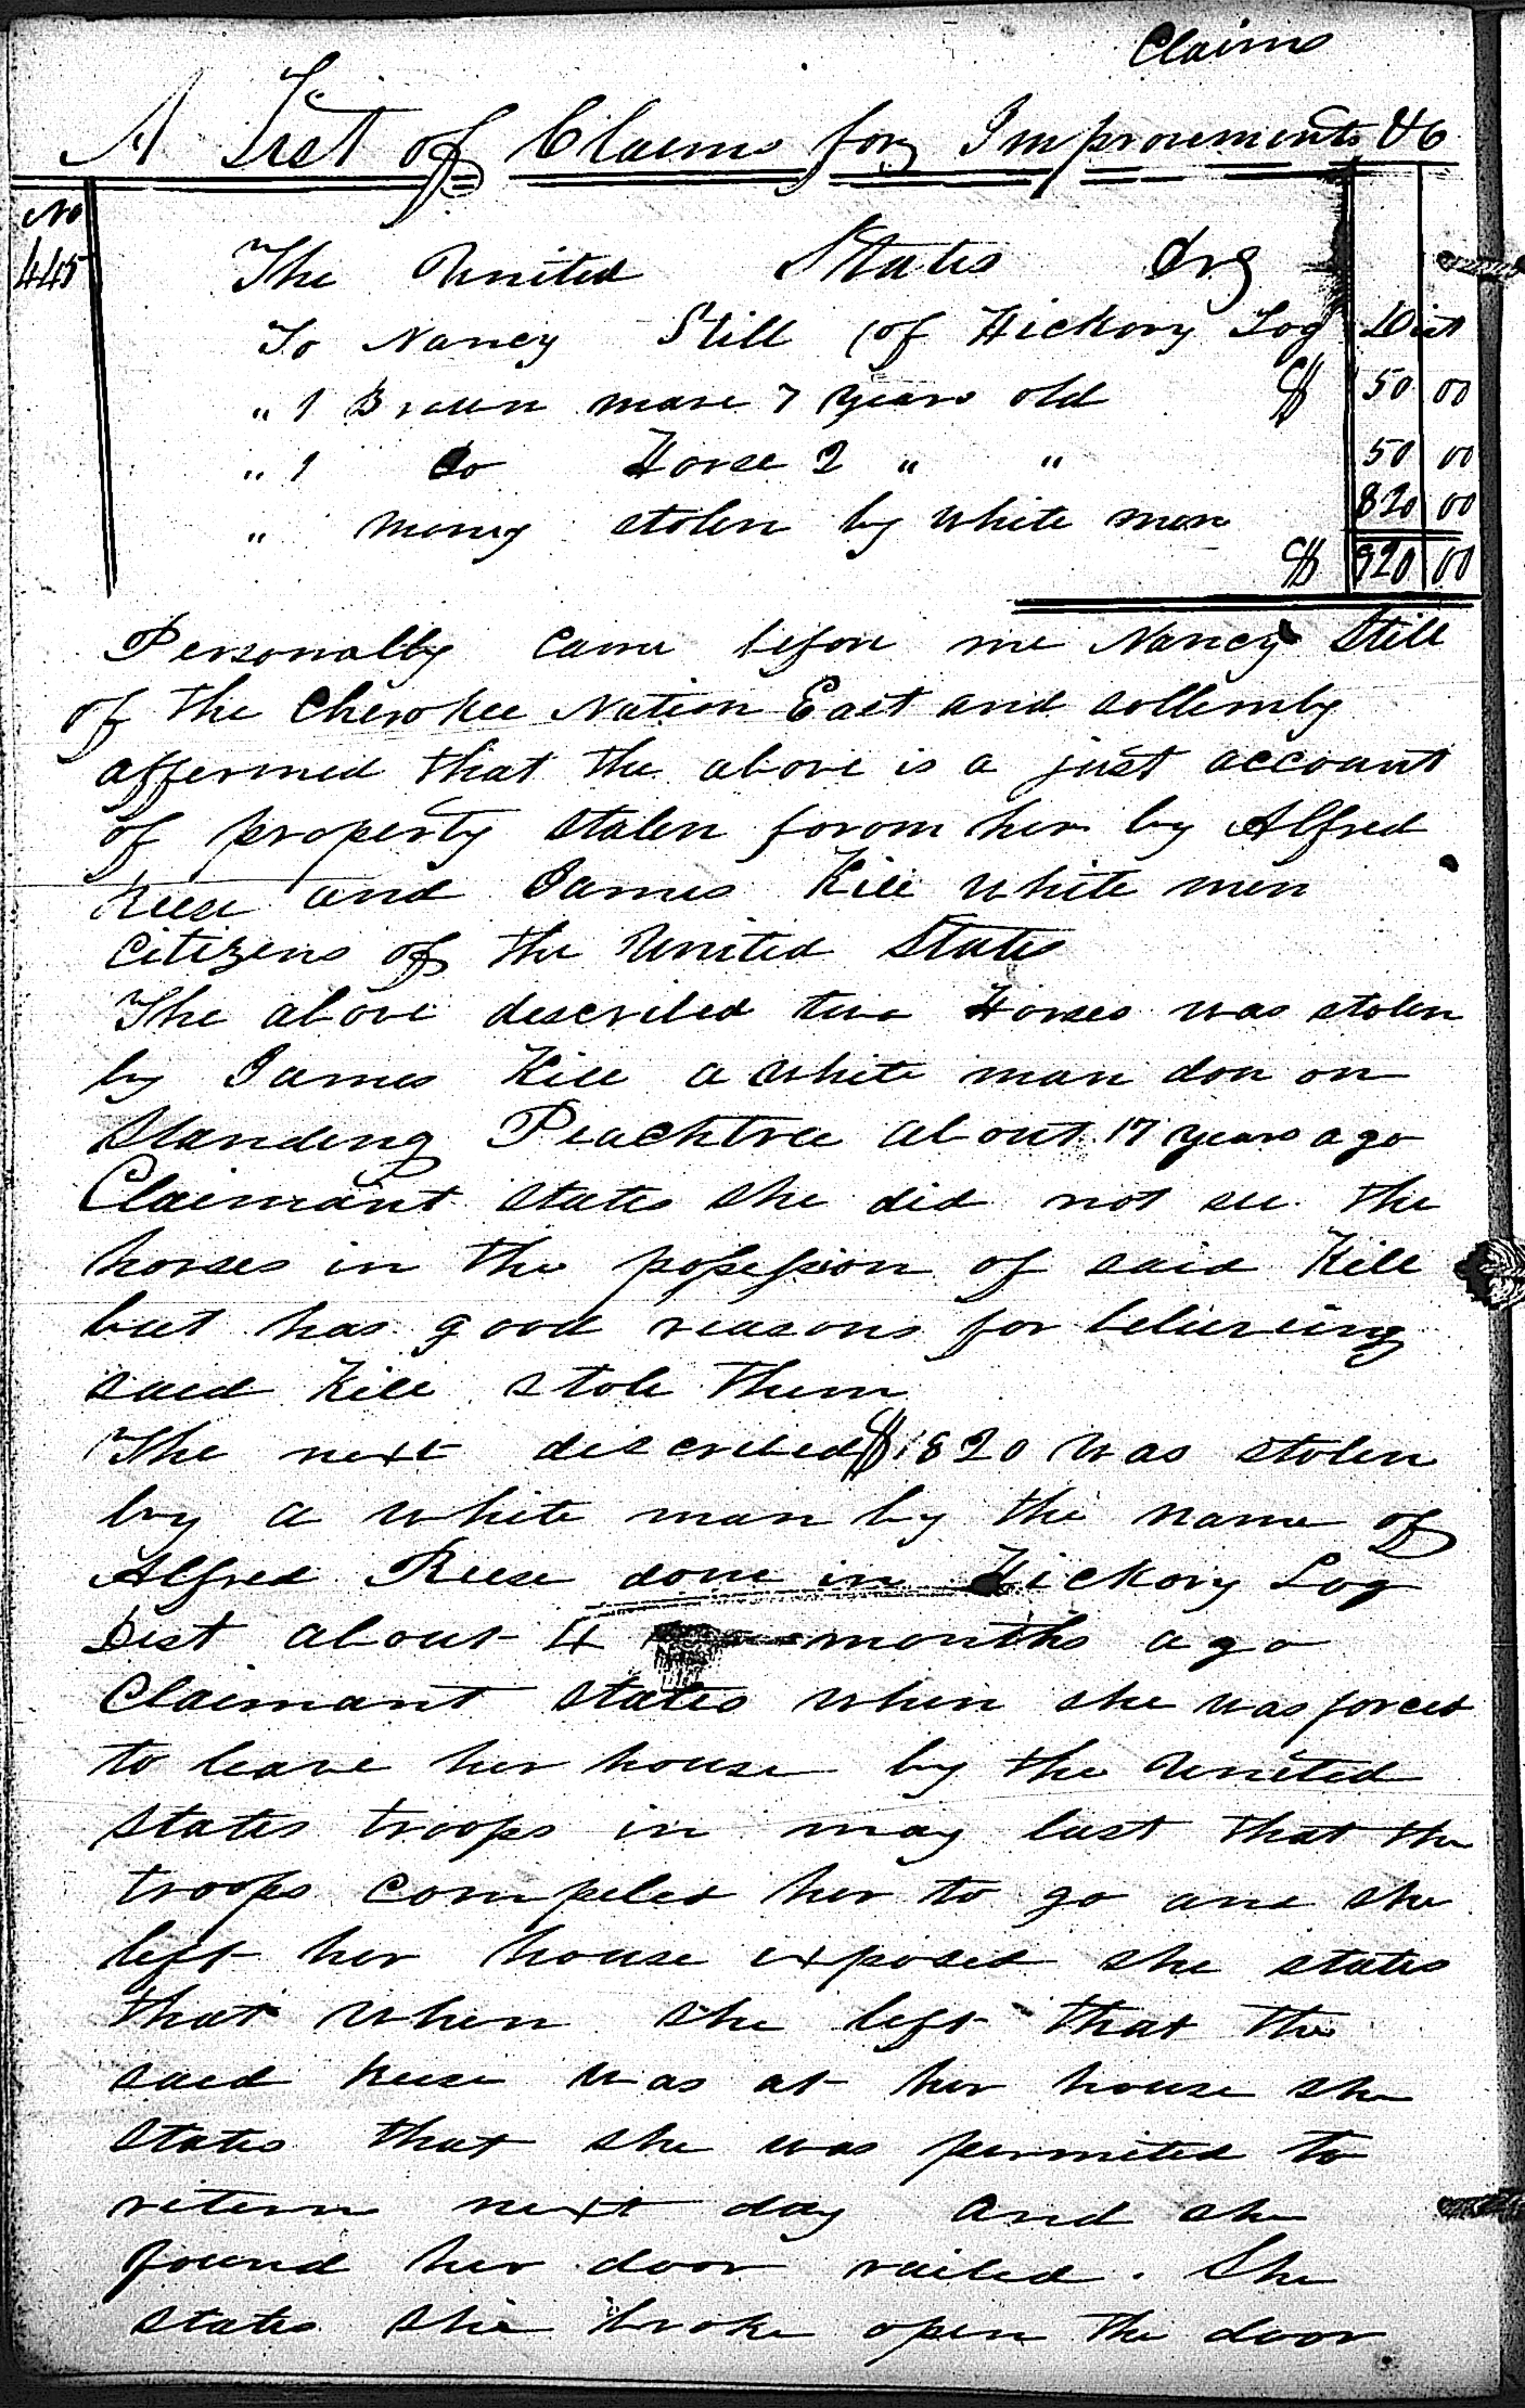 Claims
A List of Claims for Improvements &c
No
445 The United States Drs
To Nancy Still (of Hickory Log Dist
" 1 Brown mare 7 years old $ 50 00
" 1 Do Horse 2 " " 50 00
" money stolen by white men 820 00
$ 920 00
Personally came before me Nancy Still
of the Cherokee Nation East and sollemly
affermed that the above is a just account
of property stolen forom her by Alfred
Reese and James Kill white men
citizens of the United States
The above described two Horses was stolen
by James Kill a white man don on
Standing Peachtree about 17 years ago
Claimant states she did not see the
horses in the possession of said Kill
but has good reasons for believing
said Kill stole them
The next described $820 was stolen
by a white man by the name of
Alfred Reese done in Hickory Log
Dist about 4 months ago
Claimant states when she was forced
to leave her house by the United
States troops in may last that the
troops compeled her to go and she
left her house exposed she states
that when she left that the
said Reese was at her house she
states that she was permited to
return next day and she
found her door nailed. She
states she broke open the door